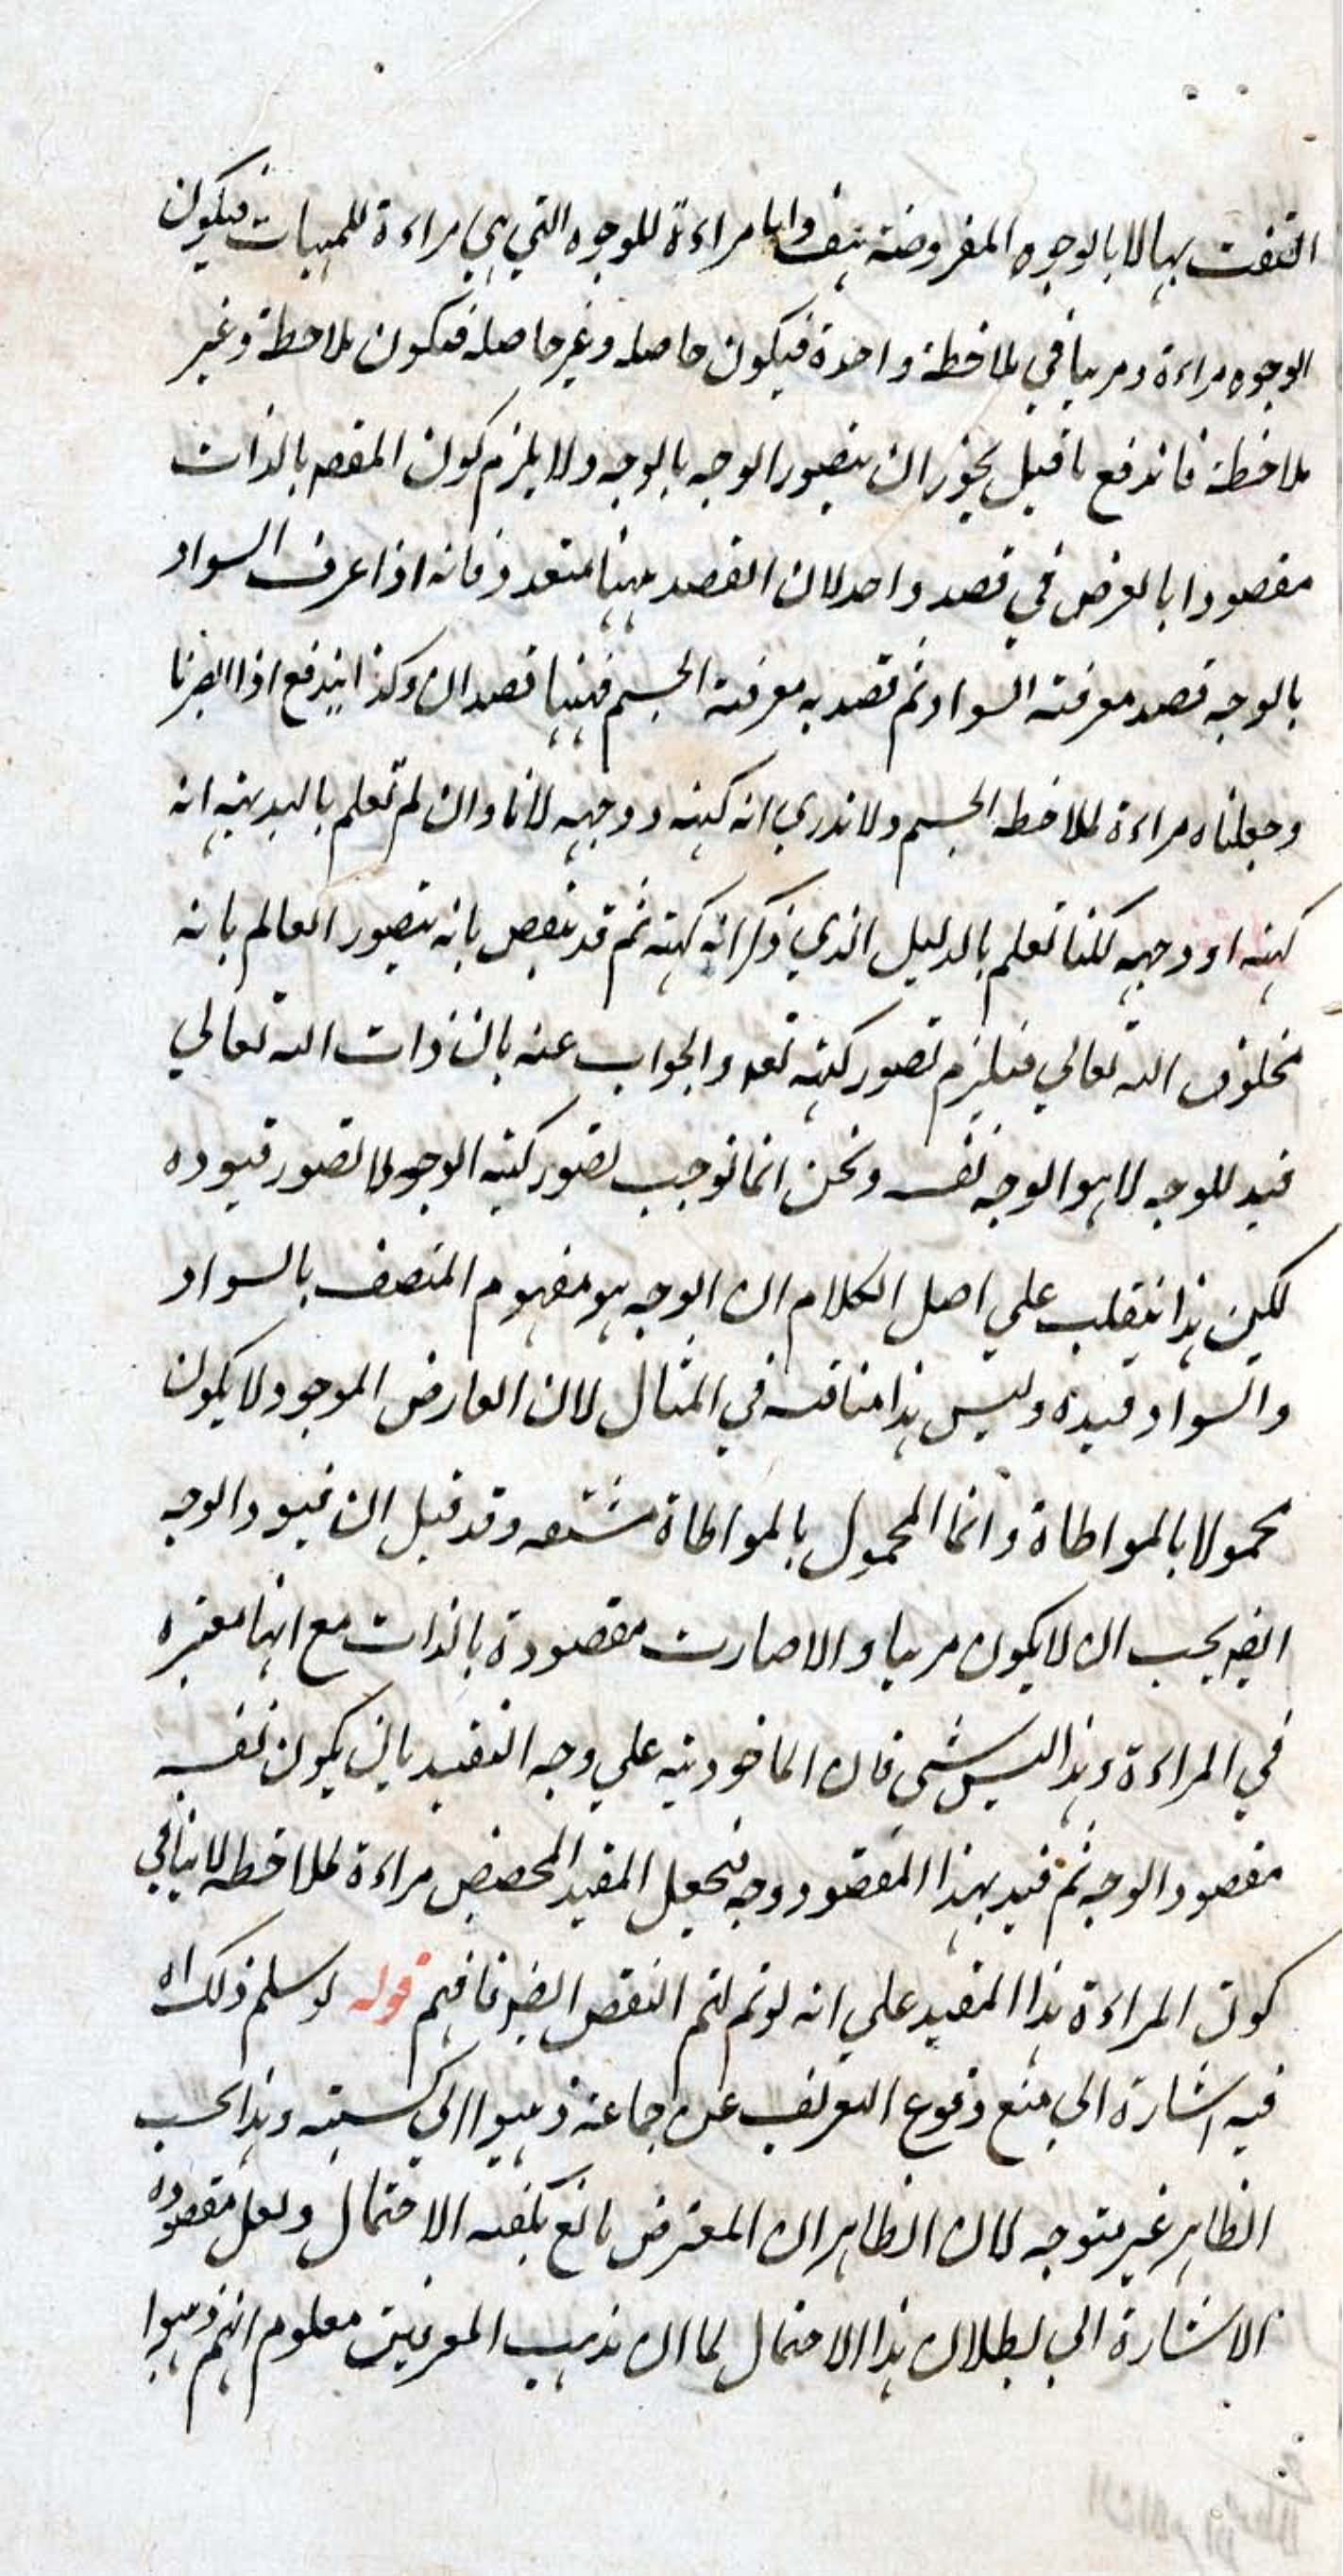 التفت بها الا بالوجوه المفروضة بنفسها واما مراءة للوجوه التي هي مراءة للمهيات فيكون
الوجوه مراءة ومرييا في ملاحظة واحدة فيكون حاصله وغير حاصله فيكون ملاحظة وغير
ملاحظة فاندفع ما قيل يجوز ان يتصور الوجه بالوجه ولا يلزم كون المقصد بالذات
مقصودا بالعرض في قصد واحد لان القصد ههنا متعدد فانه اذا عرف السواد
بالوجه قصد معرفة السواد ثم قصد به معرفة الجسم فههنا قصدان وكذا يندفع اذا ابصرنا
وجعلناه مراءة لملاحظه الجسم ولا ندري انه كنهه ووجهه لانا وان لم نعلم بالبديهة انه
كنهه او وجهه لكنا نعلم بالدليل الذي ذكر انه كنهه ثم قد ينقض بانه يتصور العالم بانه
مخلوق الله تعالي فيلزم تصور كنهه تعه والجواب عنه بان ذات الله تعالي
قيد للوجه لا هو الوجه نفسه ونحن انما نوجب تصور كنه الوجه لا تصور قيوده
لكن هذا ينقلب علي اصل الكلام ان الوجه هو مفهوم المتصف بالسواد
والسواد قيده وليس هذا مناقشه في المثال لان العارض الموجود لا يكون
محمولا بالمواطاة وانما المحمول بالمواطاة مشتقه وقد قيل ان قيود الوجه
ايضه يجب ان لا يكون مرييا والا صارت مقصودة بالذات مع انها معتبره
في المراءة وهذا ليس بشي فان الماخوذيه علي وجه التقييد بان يكون نفسه
مقصود الوجه ثم قيد بهذا المقصود وجه فجعل المقيد المحصض مراءة لملاحظه لا ينافي
كون المراءة هذا المقيد علي انه لو تم لتم النقض ايضه فافهم قوله لو سلم ذلك اه
فيه اشارة الي منع وقوع التعريف عن جماعة ذهبوا الي كسبيته وهذا بحسب
الظاهر غير متوجه لان الظاهر ان المعترض مانع يكفيه الاحتمال ولعل مقصوده
الاشارة الي بطلان هذا الاحتمال لما ان مذهب المعرفين معلوم انهم ذهبوا